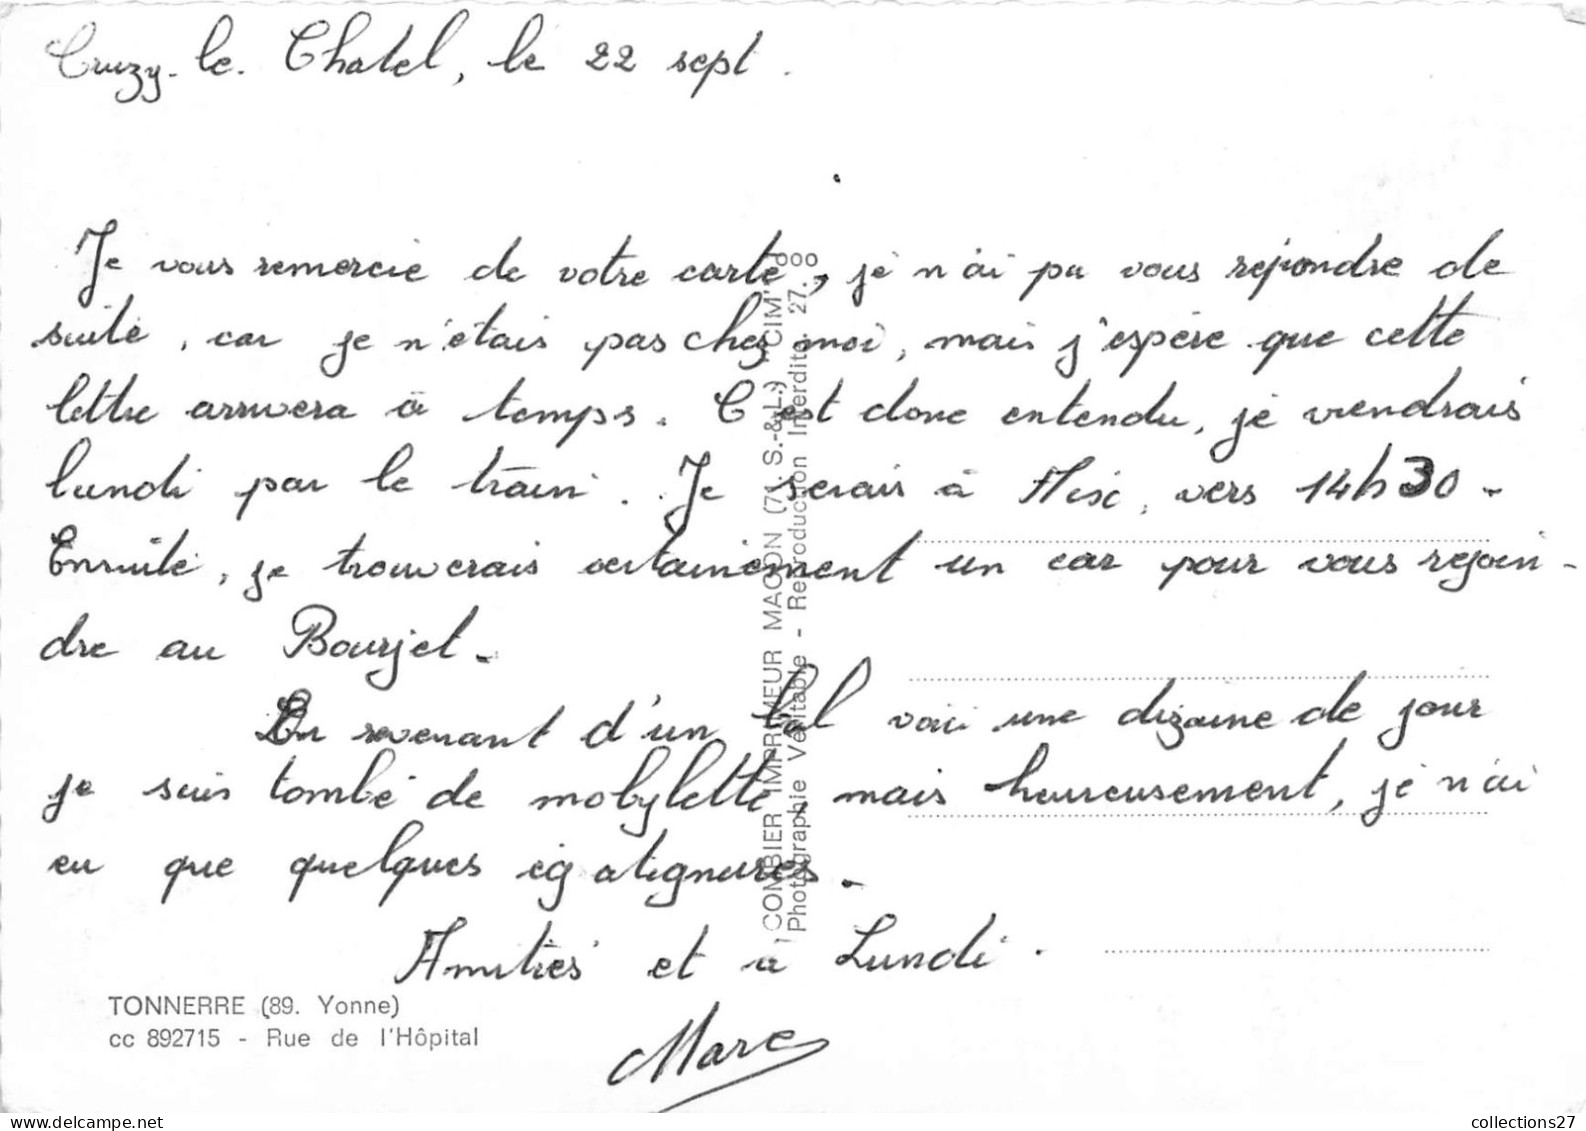 Cruzy-le-Chatel, le 22 sept.
Je vous remercie de votre carte, je n'ai pu vous répondre de
suite, car je n'étais pas chez moi, mais j'espère que cette
lettre arrivera à temps. C'est donc entendu, je viendrais
lundi par le train. Je serais à Aix, vers 14h30 -
Ensuite, je trouverais certainement un car pour vous rejoin-
dre au Bourjet -
En revenant d'un bal voici une dizaine de jour
je suis tombé de mobylette, mais heureusement, je n'ai
eu que quelques égatignures -
Amitiés et à Lundi.
Marc
TONNERRE (89. Yonne)
cc 892715 - Rue de l'Hôpital
COMBIER IMPRIMEUR MACON (71. S.-&-L.) "CIM"
Photographie Véritable - Reproduction Interdite. 27.
collections27